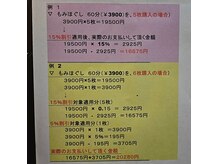 例 1
▽ もみほぐし 60分(¥3900)を、5枚購入の場合)
3900円*5枚=19500円
↓
15%割引適用後、実際のお支払いして頂く金額
19500円 × 15% = 2925円
19500円 - 2925円 =16575円
例 2
▽ もみほぐし 60分(¥3900)を、6枚購入の場合)
3900円*5枚=19500円
↓
15%割引対象適用分(5枚)
19500円 × 0.15 = 2925円
19500円 - 2925円=16575円
5%割引対象適用分(1枚)
3900円 * 1枚 = 3900円
3900円 * 5% = 195円
3900円 - 195円 = 3705円
実際のお支払いして頂く金額
16575円+3705円=20280円